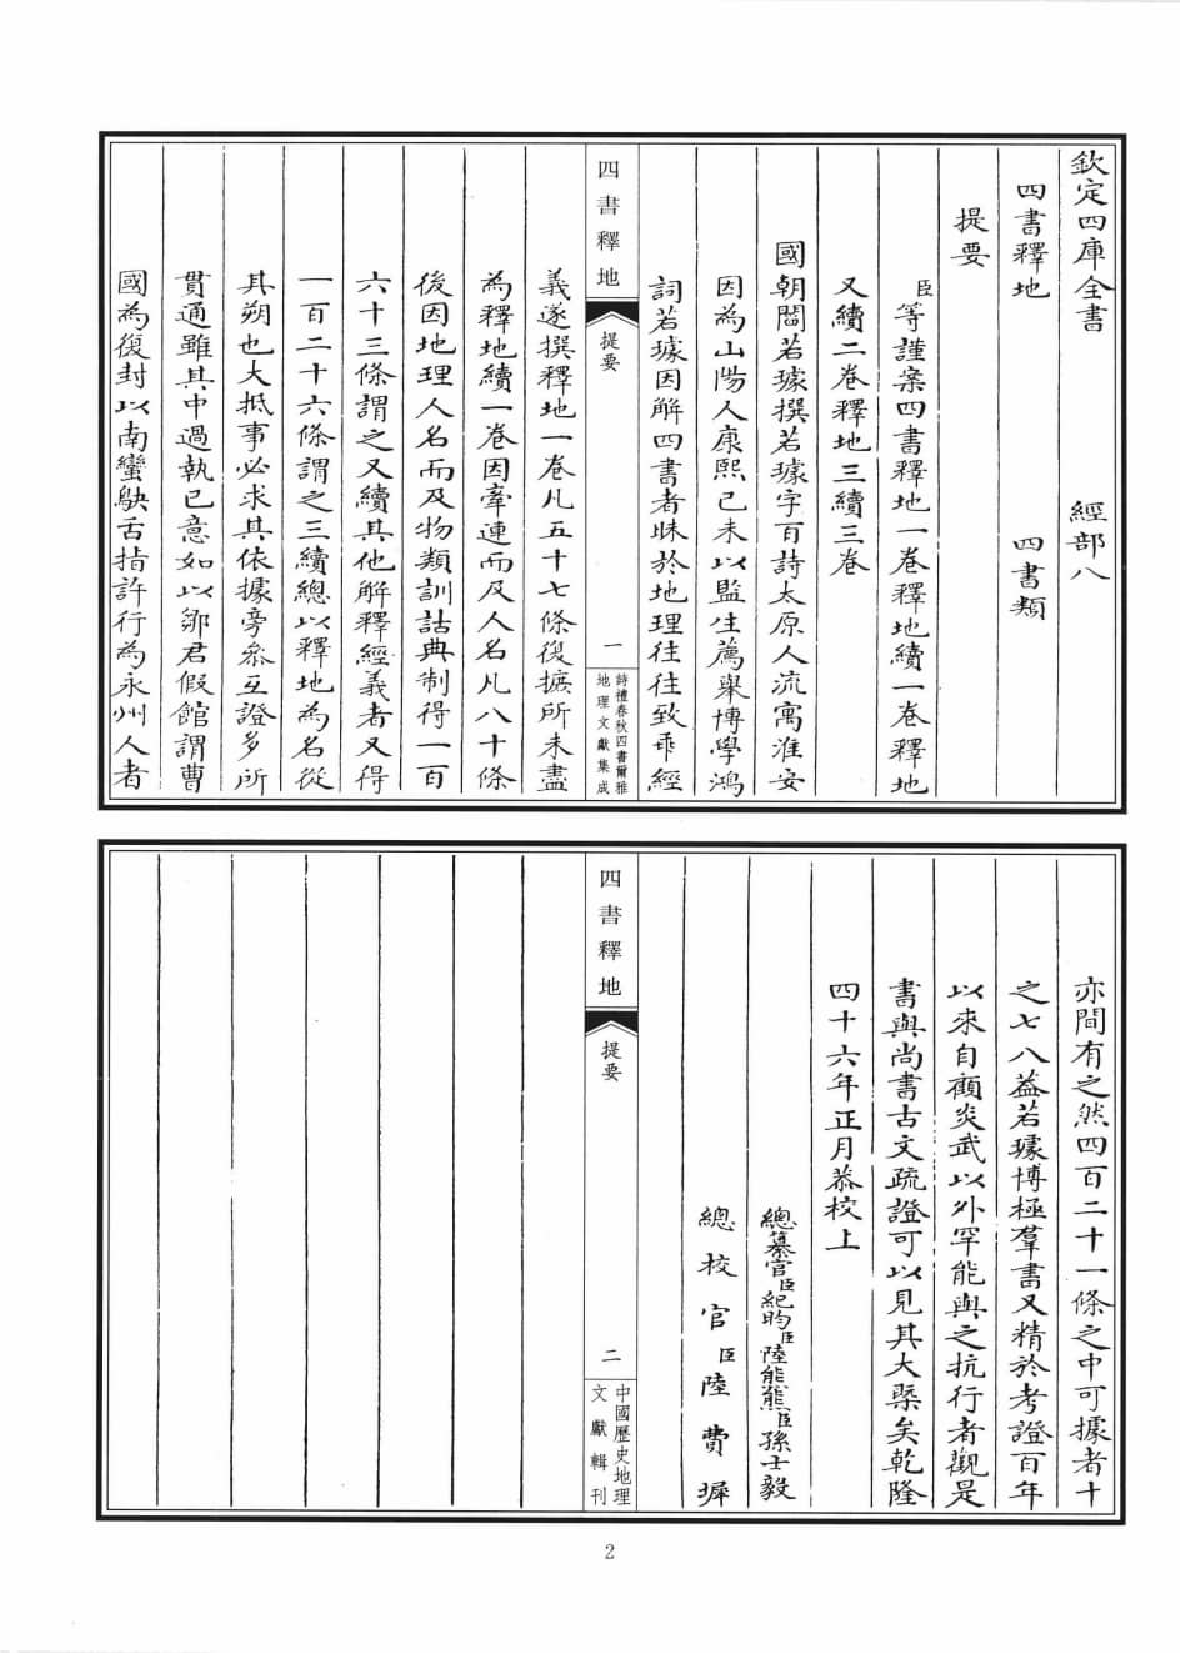 欽定四庫全書 經部八
四書釋地 四書類
提要
臣等謹案四書釋地一卷釋地續一卷釋地
又續二卷釋地三續三卷
國朝閻若璩撰若璩字百詩太原人流寓淮安
因為山陽人康熙己未以監生薦舉博學鴻
詞若璩因解四書者昧於地理往往致乖經
四書釋地 提要 一
詩禮春秋四書爾雅
地理文獻集成
義遂撰釋地一卷凡五十七條復摭所未盡
為釋地續一卷因牽連而及人名凡八十條
後因地理人名而及物類訓詁典制得一百
六十三條謂之又續其他解釋經義者又得
一百二十六條謂之三續總以釋地為名從
其朔也大抵事必求其依據旁叅互證多所
貫通雖其中過執己意如以鄒君假館謂曹
國為復封以南蠻鴃舌指許行為永州人者
亦間有之然四百二十一條之中可據者十
之七八葢若璩博極羣書又精於考證百年
以來自顧炎武以外罕能與之抗行者觀是
書與尚書古文疏證可以見其大槩矣乾隆
四十六年正月恭校上
總纂官臣紀昀臣陸錫熊臣孫士毅
總校官臣陸費墀
四書釋地 提要 二
中國歷史地理
文獻輯刊
2